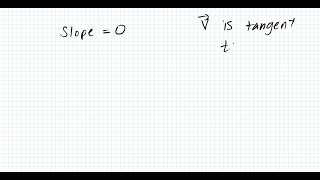 Slope = 0
V⃗ is tangent
t